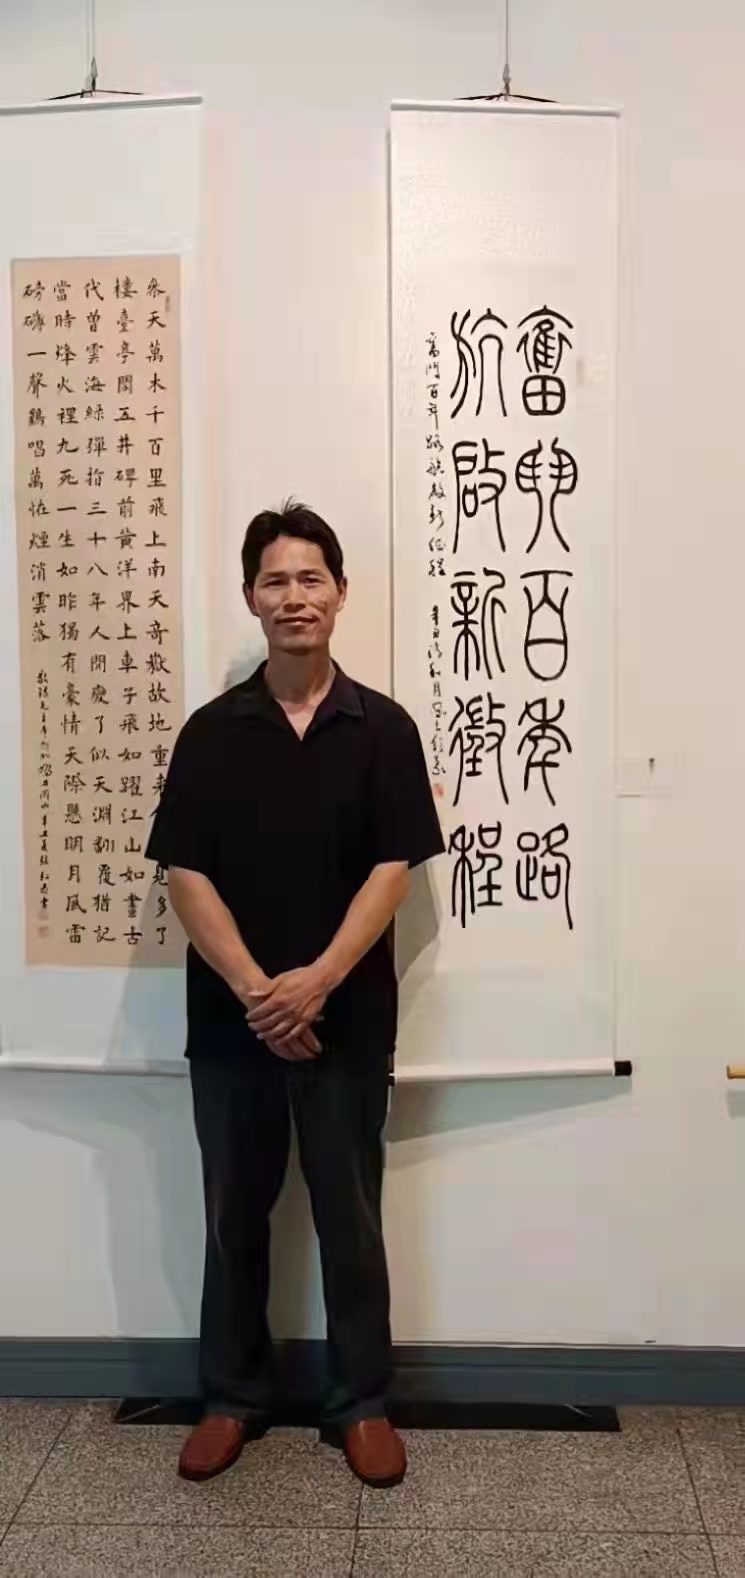 奮鬥百年路
航啟新徵程
奮鬥百年路航啟新征程
參天萬木千百里飛上南天奇嶽故地重来見多了
樓臺亭閣五井碑前黃洋界上車子飛如躍江山如畫古
代曾雲海綠彈指三十八年人間變了似天淵翻覆猶記
當時烽火裡九死一生如昨獨有豪情天際懸明月風雷
磅礴一聲鷄唱萬怪煙消雲落